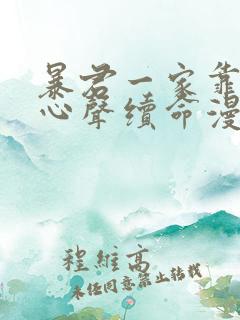 暴君一家靠
心聲續命漫
程維高
未经同意禁止转载